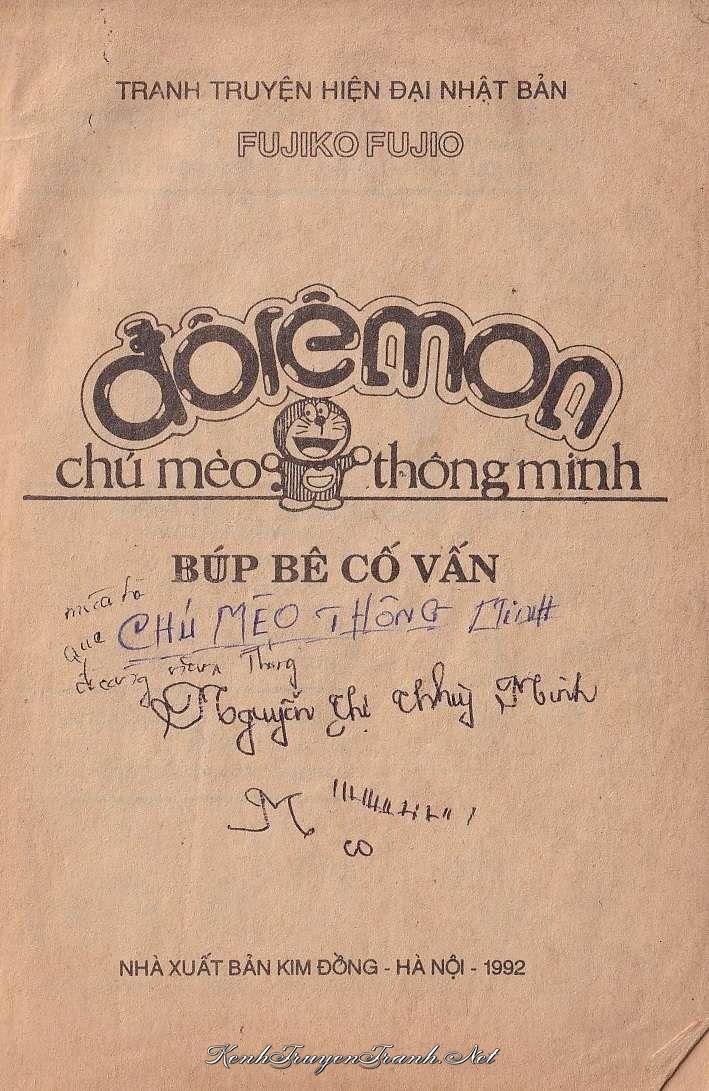 TRANH TRUYỆN HIỆN ĐẠI NHẬT BẢN
FUJIKO FUJIO
đôrêmon
chú mèo thông minh
BÚP BÊ CỐ VẤN
CHÚ MÈO THÔNG Minh
Nguyễn Thị Thuỳ Minh
M
co
NHÀ XUẤT BẢN KIM ĐỒNG - HÀ NỘI - 1992
KenhTruyenTranh.Net